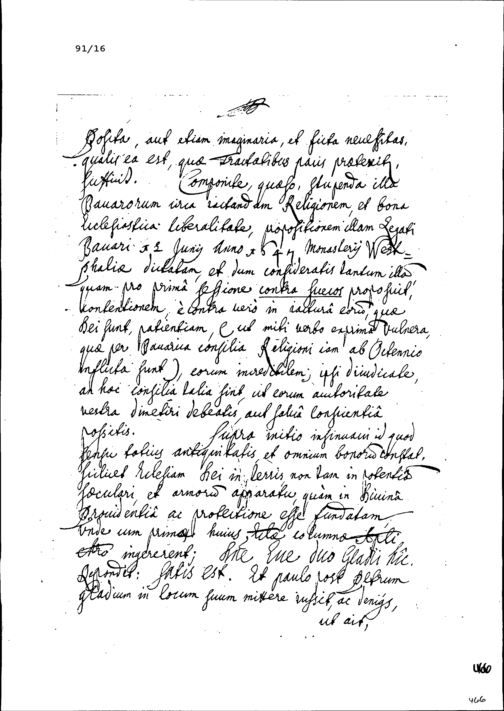 91/16
Posita, aut etiam imaginaria, et ficta necessitas,
qualis ea est, quæ Tractatibus pacis prætexit,
suffecit. Componite, quæso, stupenda illa
Bavarorum circa iactandam Religionem et bona
Ecclesiastica liberalitate, propositionem illam Legati
Bavari Junij Anno Monasterij West=
phaliæ dictatam, et dum consideratis tantum illa
quam pro prima sessione contra suecos proposuit,
contentionem, è contra verò in iactura eorum, quæ
Dei sunt, patientiam, (ut mihi verbo exprimam vulnera,
quæ per Bavarica consilia Religioni iam ab Octennio
inflicta sunt), eorum incredibilem; ipsi diiudicate,
an hoc consilia talia sint, ut eorum auctoritate
vestra dimetiri debeatis, aut salva conscientia
possitis. Supra initio insinuavi id quod
sensu totius antiquitatis, et omnium bonorum constat,
scilicet Ecclesiam Dei in terris non tam in potentia
sæculari, et armorum apparatu, quam in Divina
Providentia ac protectione esse fundatam
Unde cum primæ huius columnæ
ingererent; Ecce duo Gladii hic.
Respondet: Satis est. Et paulo post Petrum
gladium in locum suum mittere iussit, ac denique,
ut ait,
466
466